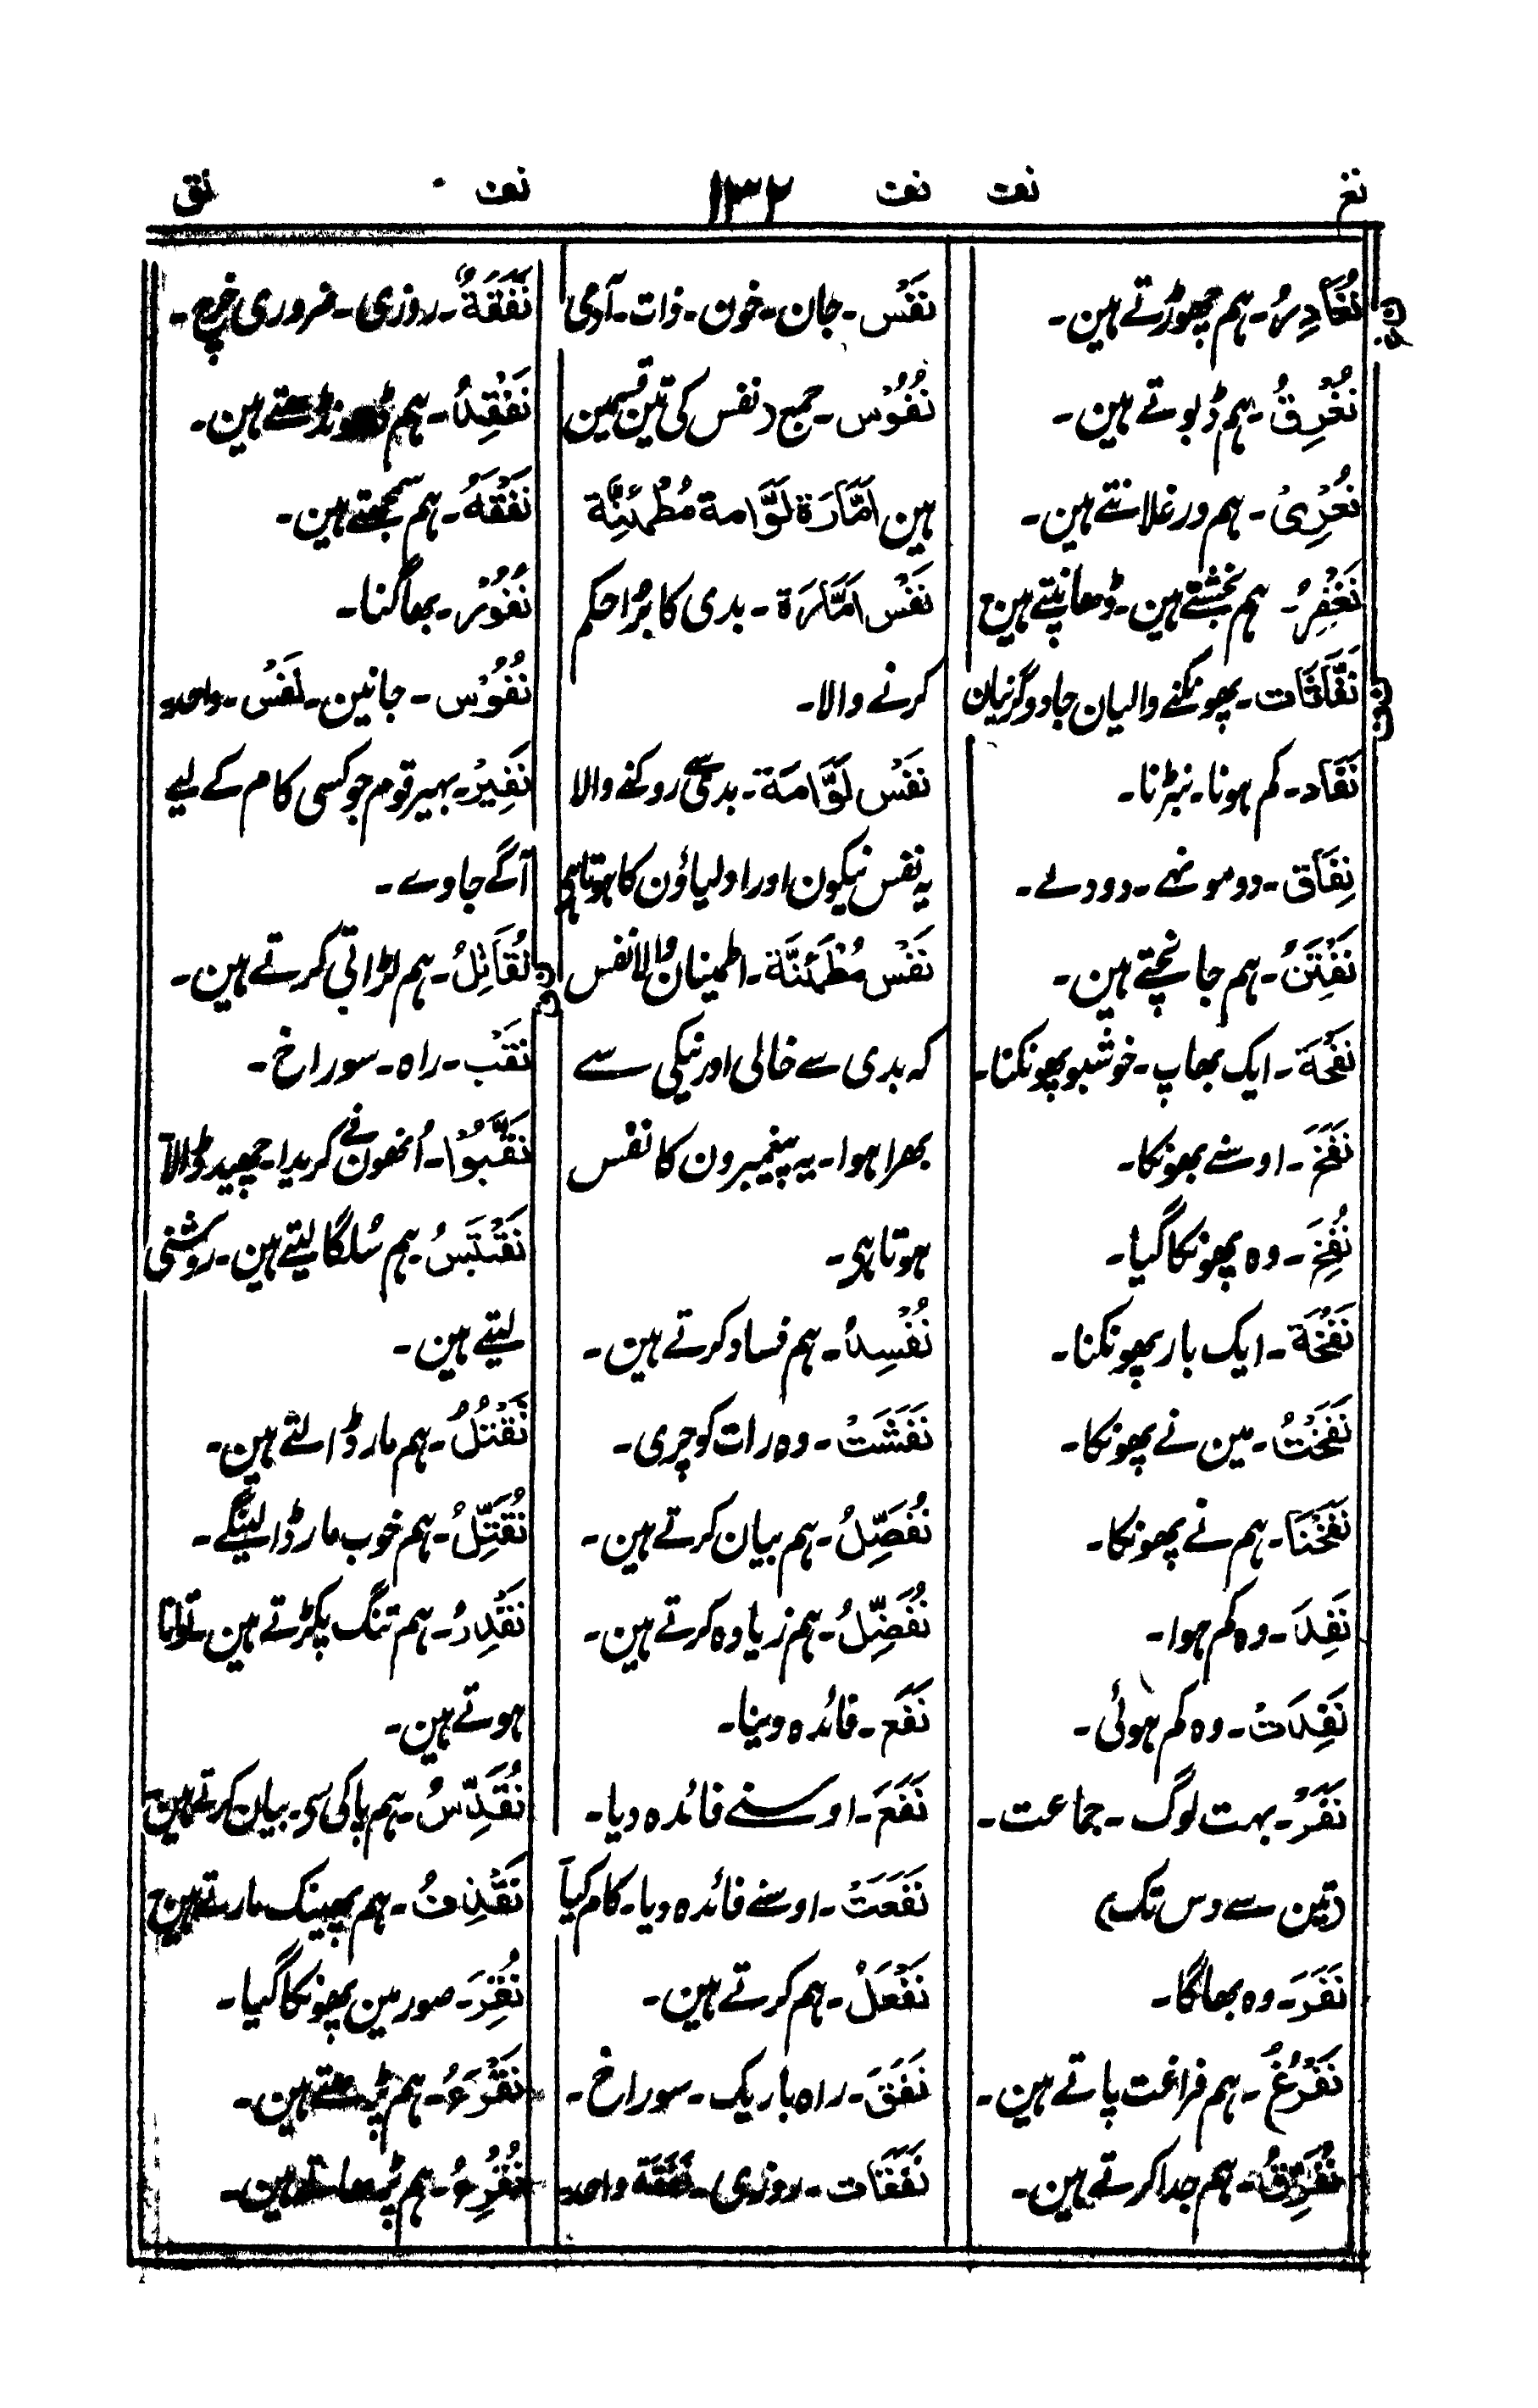 نغ نف نف ١٣٢ نف نق
نُغَادِرُ۔ ہم چھوڑتے ہین۔
نُغْرِقُ۔ ہم ڈبوتے ہین۔
نُغْرِیُ۔ ہم ورغلانتے ہین۔
نَغْفِرُ۔ ہم بخشتے ہین۔ ڈھانپتے ہین
نَفَّاثَات۔ پھونکنے والیان جادوگرنیان
نَفَاد۔ کم ہونا۔ نبڑنا۔
نِفَاق۔ دومونہے۔ دودلے۔
نَفْتِنُ۔ ہم جانچتے ہین۔
نَفْحَة۔ ایک بھاپ۔ خوشبو پھونکنا۔
نَفَخَ۔ اوسنے پھونکا۔
نُفِخَ۔ وہ پھونکا گیا۔
نَفْخَة۔ ایک بار پھونکنا۔
نَفَخْتُ۔ مین نے پھونکا۔
نَفَخْنَا۔ ہم نے پھونکا۔
نَفِدَ۔ وہ کم ہوا۔
نَفِدَتْ۔ وہ کم ہوئی۔
نَفَرْ۔ بہت لوگ۔ جماعت۔
(تین سے دس تک)
نَفَرَ۔ وہ بھاگا۔
نَفْرُغُ۔ ہم فراغت پاتے ہین۔
نُفَرِّقُ۔ ہم جدا کرتے ہین۔
نَفْس۔ جان۔ خون۔ ذات۔ آدمی
نُفُوْس۔ جمع ونفس کی تین قسمین
ہین اَمَّارَة لَوَّامة مُطْمَئِنَّة
نَفْس اَمَّارَة۔ بدی کا بڑا حکم
کرنے والا۔
نَفْس لَوَّامَة۔ بدی سے روکنے والا
یہ نفس نیکون اور اولیاؤن کا ہوتا ہی
نَفْس مُطْمَئِنَّة۔ اطمینان والا نفس
کہ بدی سے خالی اور نیکی سے
بھرا ہوا۔ یہ پیغمبرون کا نفس
ہوتا ہی۔
نُفْسِدُ۔ ہم فساد کرتے ہین۔
نَفَشَتْ۔ وہ رات کو چری۔
نُفَصِّلُ۔ ہم بیان کرتے ہین۔
نُفَضِّلُ۔ ہم زیادہ کرتے ہین۔
نَفْع۔ فائدہ دینا۔
نَفَعَ۔ اوسنے فائدہ دیا۔
نَفَعَتْ۔ اوسنے فائدہ دیا۔ کام کیا
نَفْعَلْ۔ ہم کرتے ہین۔
نَفَقَ۔ راہ باریک۔ سوراخ۔
نَفَقَات۔ روزی۔ نَفَقَة واحد
نَفَقَةً۔ روزی۔ ضروری خرچ۔
نَفْقِدُ۔ ہم ڈھونڈھتے ہین۔
نَفْقَهُ۔ ہم سمجھتے ہین۔
نُفُوْر۔ بھاگنا۔
نُفُوْس۔ جانین۔ نَفْس۔ واحد
نَفِیْرْ۔ بہیر قوم جو کسی کام کے لیے
آگے جاوے۔
نُقَاتِلُ۔ ہم لڑائی کرتے ہین۔
نَقْب۔ راہ۔ سوراخ۔
نَقَّبُوْا۔ اُنھون نے کریدا۔ چھید ڈالا
نَقْتَبِسُ۔ ہم سُلگا لیتے ہین۔ روشنی
لیتے ہین۔
نَقْتُلُ۔ ہم مار ڈالتے ہین۔
نُقَتِّلُ۔ ہم خوب مار ڈالینگے۔
نَقْدِرُ۔ ہم تنگ پکڑتے ہین۔ توانا
ہوتے ہین۔
نُقَدِّسُ۔ ہم پاکی سی۔ بیان کرتے ہین
نَقْذِفُ۔ ہم پھینک مارتے ہین
نُقِرَ۔ صور مین پھونکا گیا۔
نَقْرَءُ۔ ہم پڑھتے ہین۔
نُقْرِءُ۔ ہم پڑھاتے ہین۔